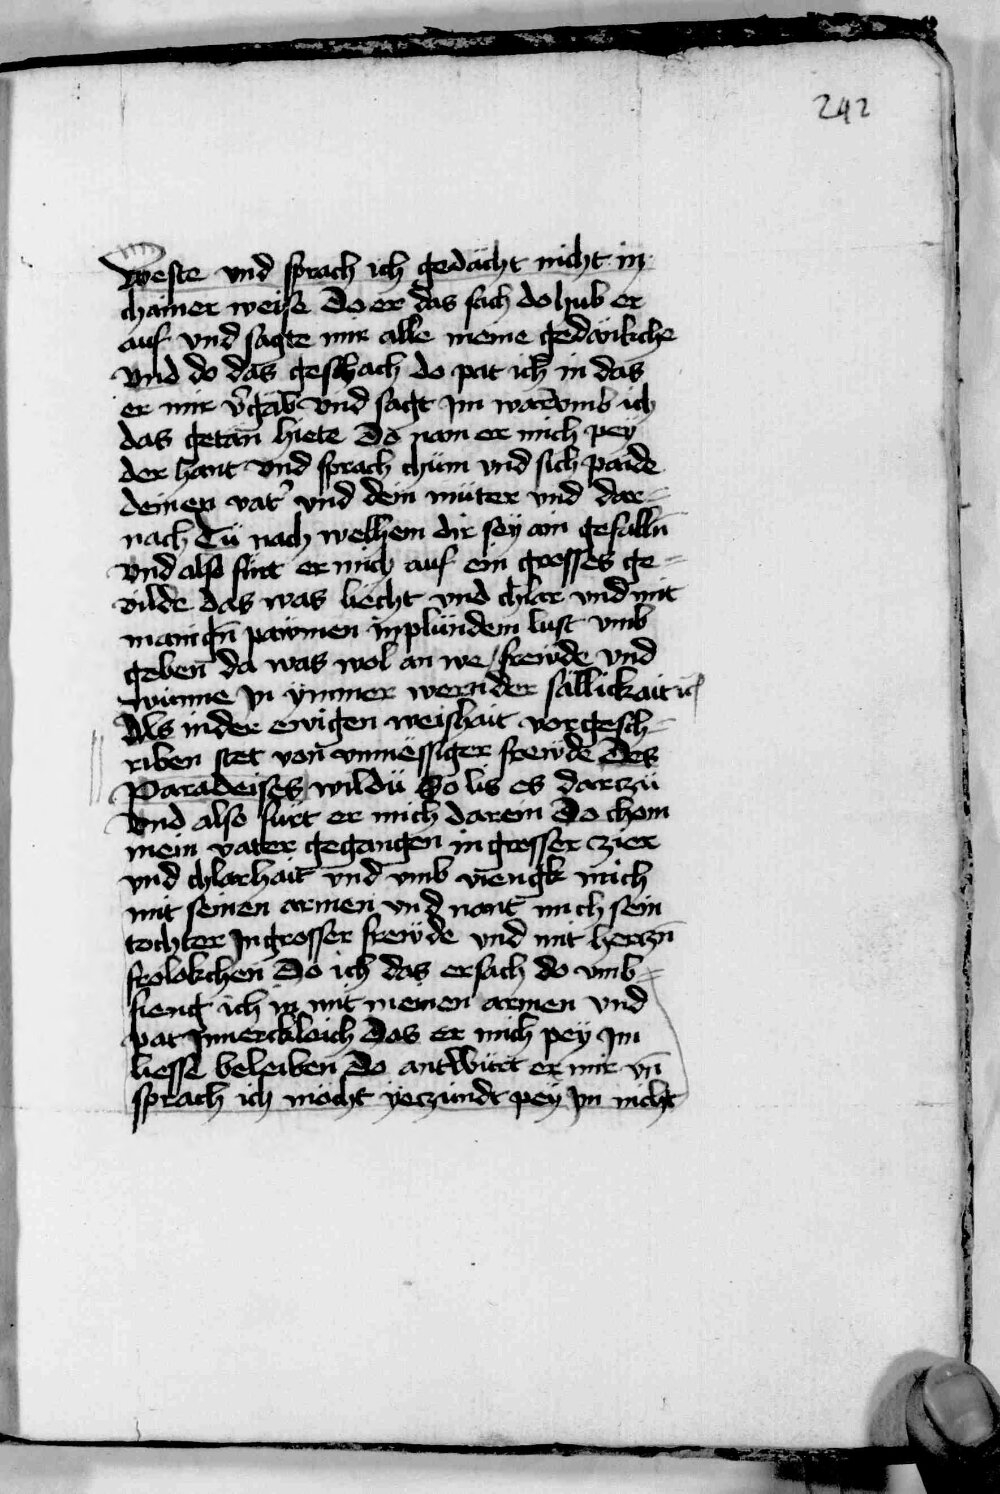 242
weste vnd sprach ich gedächt nicht in
chainer weise Do er das sach do hub er
auf vnd sagte mir alle meine gedänkche
vnd do das geschach do pat ich in das
er mir v̉gäb vnd sagt Im warvmb ich
das getan hiete Do nam er mich pey
der hant vnd sprach chüm vnd sich paide
deinen vat̉ vnd dein müter vnd dar=
nach Tü nach welhem dir sey ain gefalln̄
vnd also fürt er mich auf ein grosses ge=
vilde das was liecht vnd chlar vnd mit
manign̄ pawmen in plündem lust vmb
geben da was wol an we / frewde vnd
wünne in ymmer wernder sällickait
Als in der ewigen weishait vorgesch=
riben stet von vnmessiger frewde Des
Paradeises wildu So lis es darczü
vnd also fürt er mich darein Do chom
mein vater gegangen in grosser zier
vnd chlarhait vnd vmb viengk mich
mit seinen armen vnd nant mich sein
tochter In grosser frewde vnd mit herczn̄
frolokchen Do ich das ersach do vmb=
fieng ich in mit meinen armen vnd
pat Innerckleich Das er mich pey Im
liesse beleiben Do antwürt er mir vn̄
sprach ich möcht yeczundt pey Im nicht